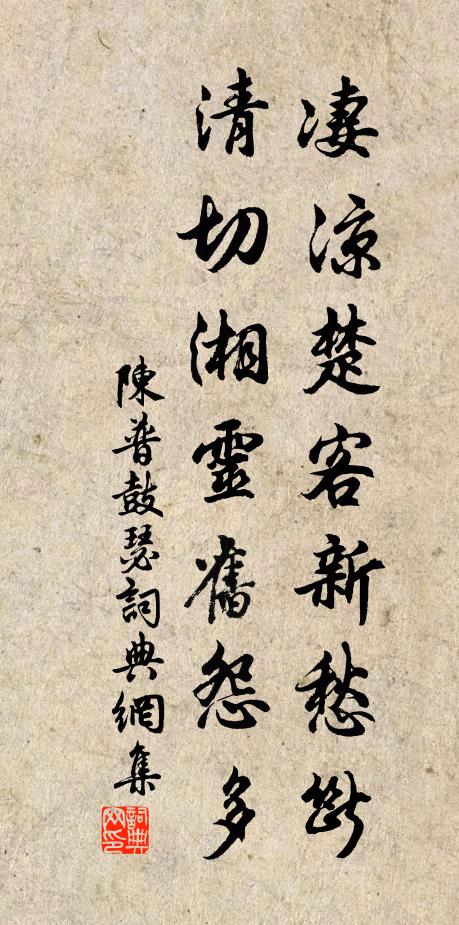 凄涼楚客新愁斷
清切湘靈舊怨多
陳普鼓瑟詞典網集
詞典网印